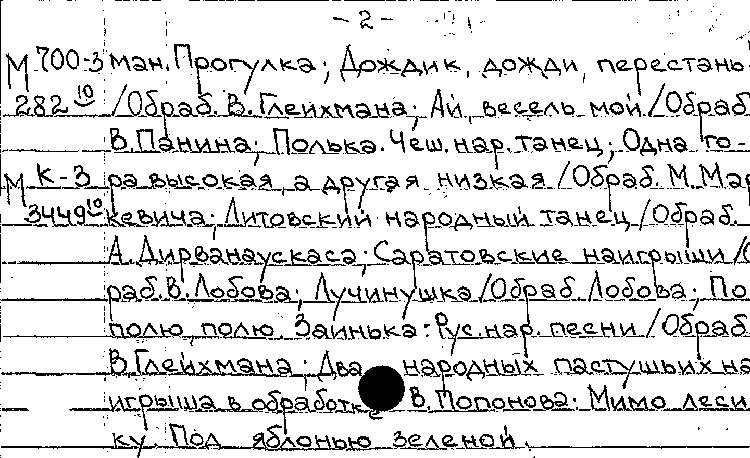 - 2 -
М 700-3 ман. Прогулка; Дождик, дожди, перестань
282 10 /Обраб. В. Глейхмана; Ай, весель мой /Обраб
В. Панина; Полька. Чеш. нар. танец; Одна го-
М К-3 ра высокая, а другая низкая /Обраб. М. Мар
3449 10 кевича; Литовский народный танец /Обраб.
А. Дирванаускаса; Саратовские наигрыши /О
раб. В. Лобова; Лучинушка /Обраб. Лобова; По
полю, полю. Заинька: Рус. нар. песни /Обраб
В. Глейхмана; Два народных пастушьих на
игрыша в обработке В. Попонова: Мимо леси
ку. Под яблонью зеленой.